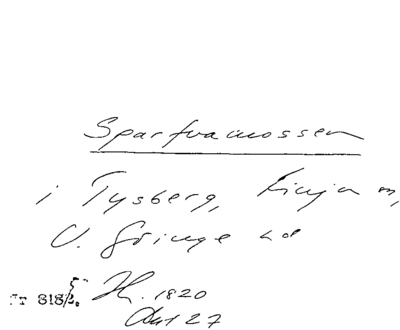 Sparfvamossen
i Tysberg, Linja m,
V. Göinge hd
Fr 818/2.
Hl. 1820
Akt 27